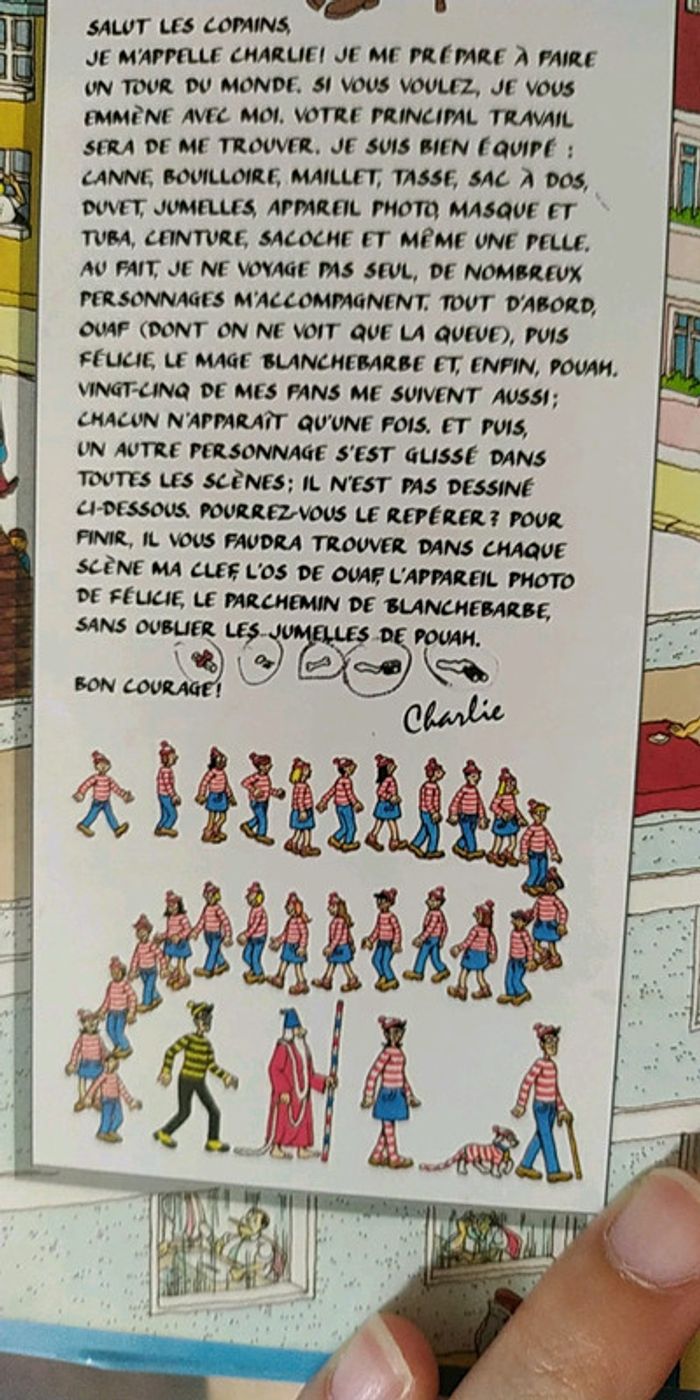 SALUT LES COPAINS,
JE M'APPELLE CHARLIE! JE ME PRÉPARE À FAIRE
UN TOUR DU MONDE. SI VOUS VOULEZ, JE VOUS
EMMÈNE AVEC MOI. VOTRE PRINCIPAL TRAVAIL
SERA DE ME TROUVER. JE SUIS BIEN ÉQUIPÉ :
CANNE, BOUILLOIRE, MAILLET, TASSE, SAC À DOS,
DUVET, JUMELLES, APPAREIL PHOTO, MASQUE ET
TUBA, CEINTURE, SACOCHE ET MÊME UNE PELLE.
AU FAIT, JE NE VOYAGE PAS SEUL, DE NOMBREUX
PERSONNAGES M'ACCOMPAGNENT. TOUT D'ABORD,
OUAF (DONT ON NE VOIT QUE LA QUEUE), PUIS
FÉLICIE, LE MAGE BLANCHEBARBE ET, ENFIN, POUAH.
VINGT-CINQ DE MES FANS ME SUIVENT AUSSI ;
CHACUN N'APPARAÎT QU'UNE FOIS. ET PUIS,
UN AUTRE PERSONNAGE S'EST GLISSÉ DANS
TOUTES LES SCÈNES ; IL N'EST PAS DESSINÉ
CI-DESSOUS. POURREZ-VOUS LE REPÉRER ? POUR
FINIR, IL VOUS FAUDRA TROUVER DANS CHAQUE
SCÈNE MA CLEF, L'OS DE OUAF, L'APPAREIL PHOTO
DE FÉLICIE, LE PARCHEMIN DE BLANCHEBARBE,
SANS OUBLIER LES JUMELLES DE POUAH.
BON COURAGE !
Charlie